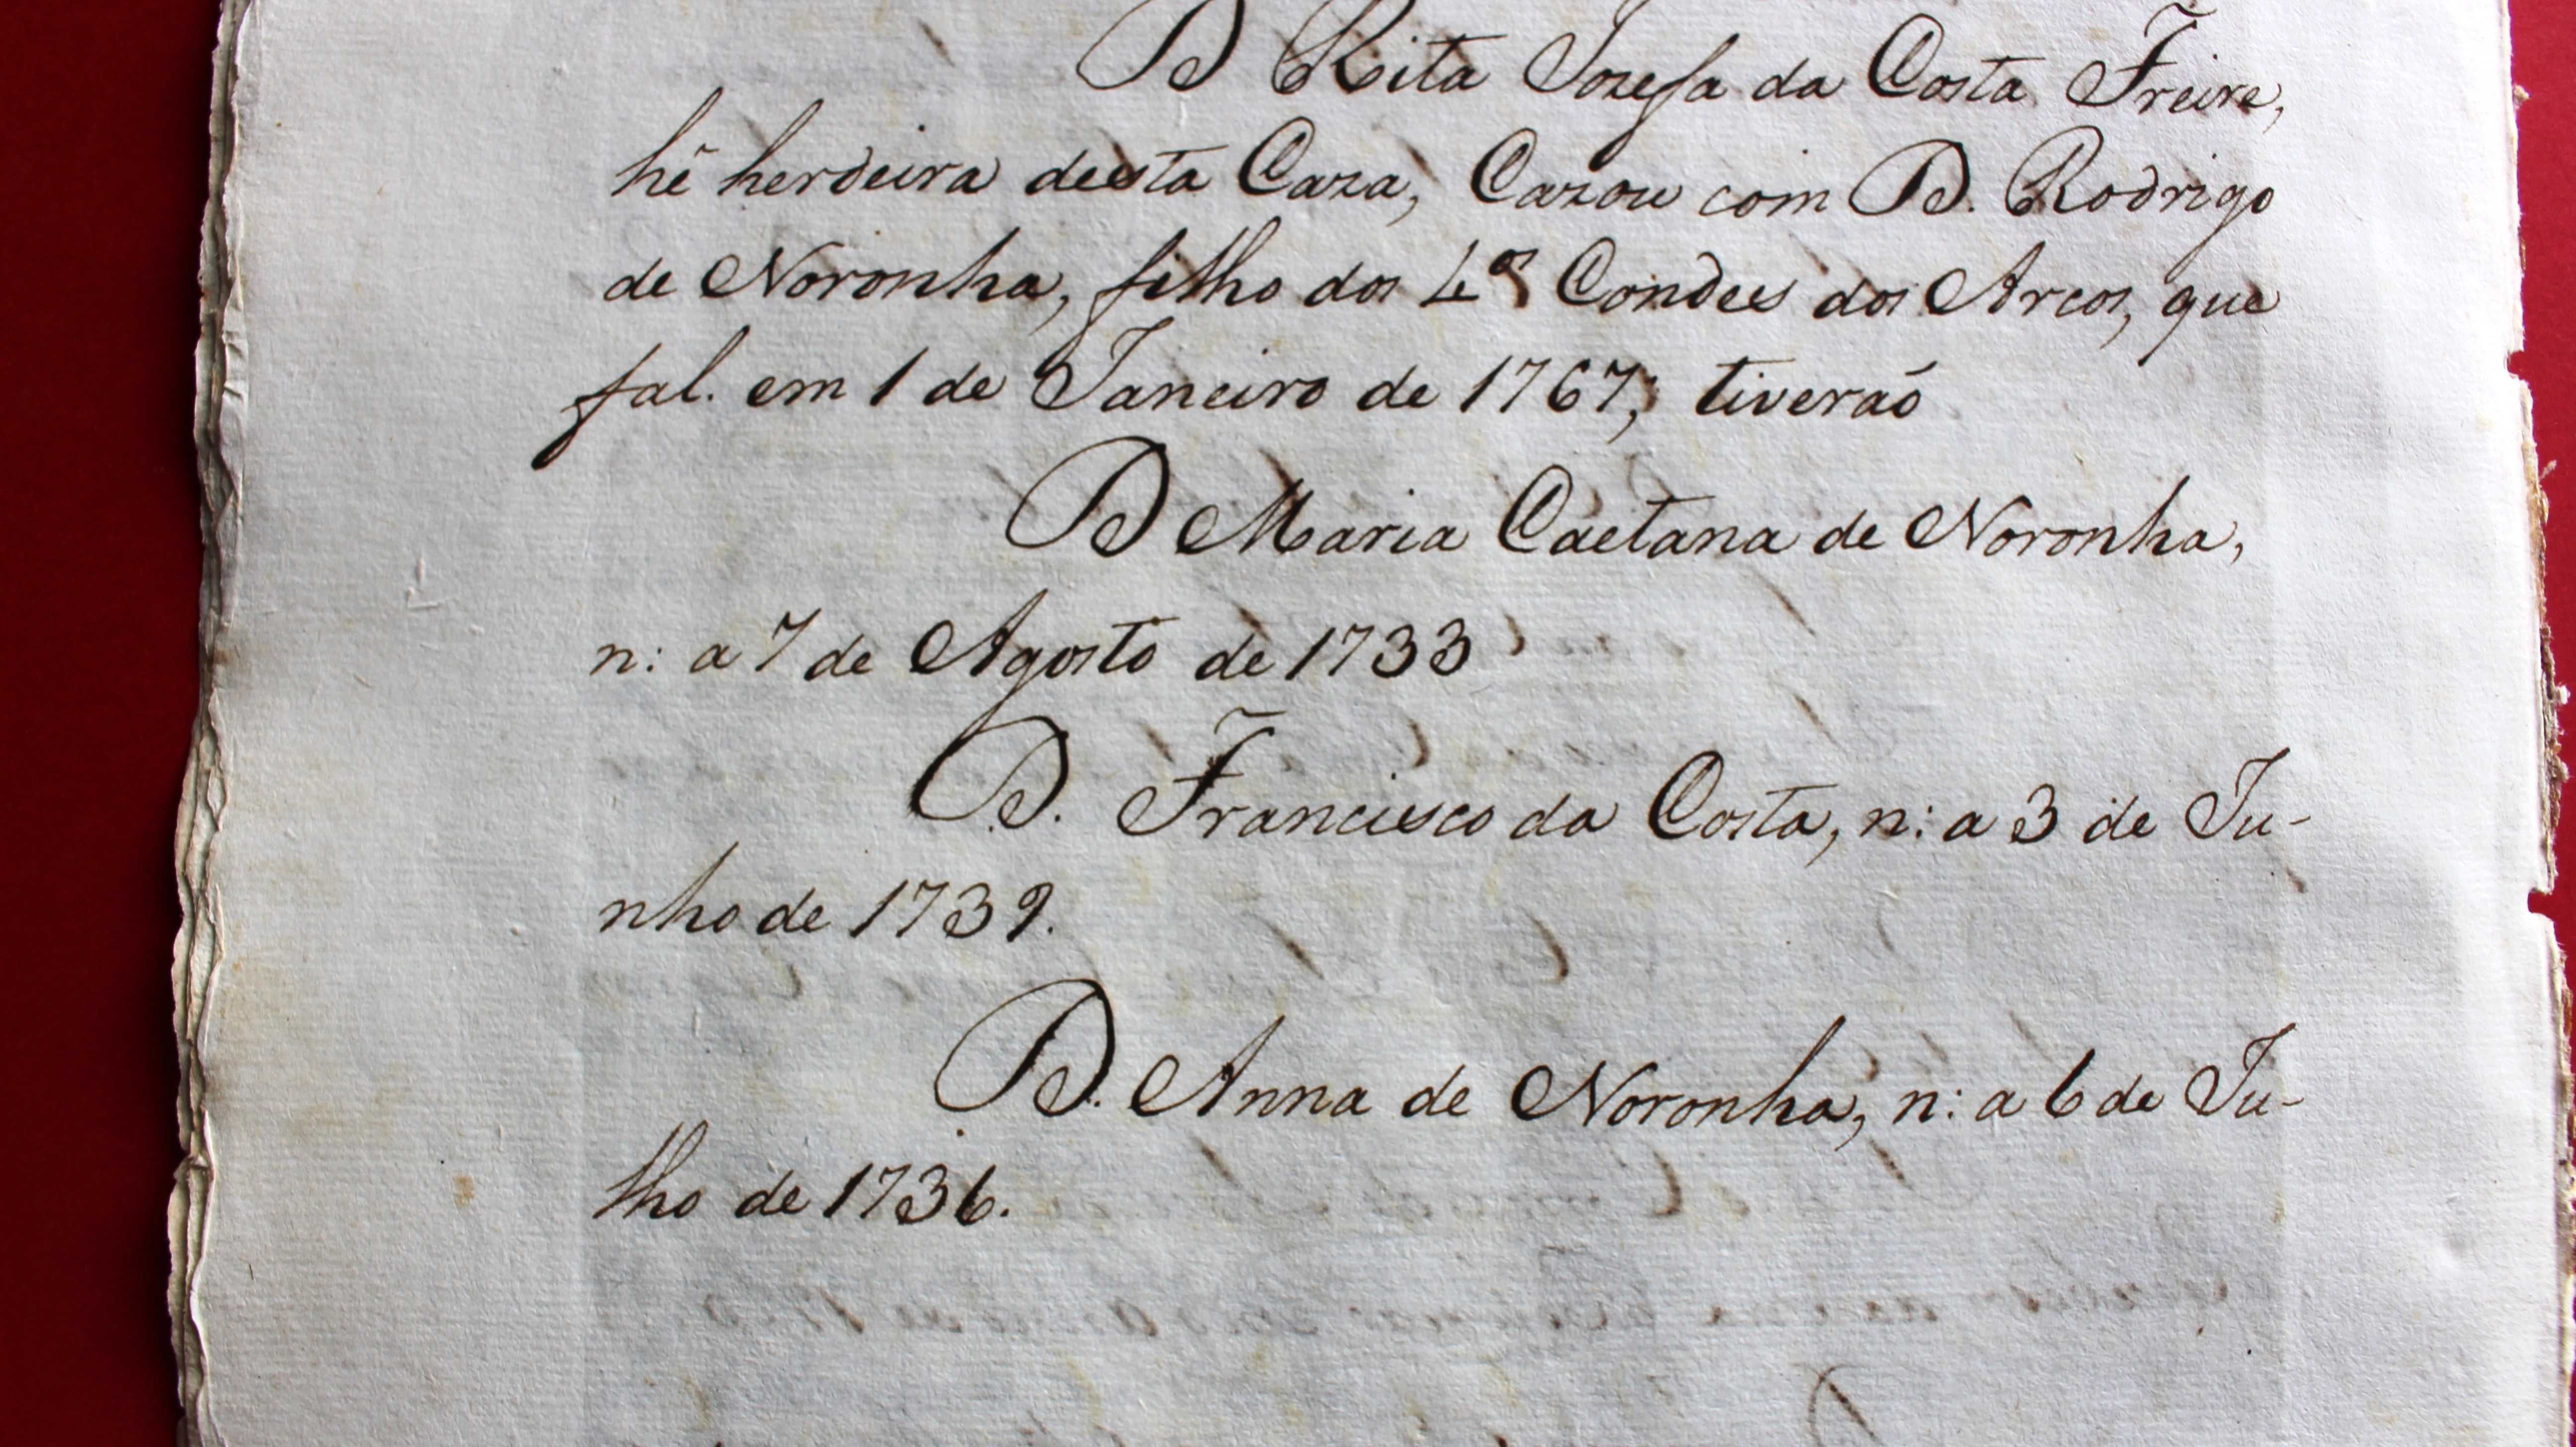 D Rita Jozefa da Costa Freire,
hê herdeira desta Caza, Cazou com D. Rodrigo
de Noronha, filho dos 4.os Condes dos Arcos, que
fal. em 1 de Janeiro de 1767; tiveraó
D Maria Caetana de Noronha,
n: a 7 de Agosto de 1733
D. Francisco da Costa, n: a 3 de Ju-
nho de 1739.
D. Anna de Noronha, n: a 6 de Ju-
lho de 1736.